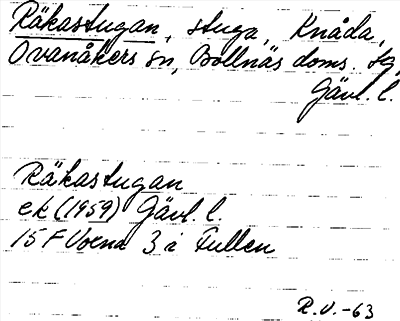 Räkastugan, stuga, Knåda,
Ovanåkers sn, Bollnäs doms. sg,
Gävl. l.
Räkastugan
ek (1959) Gävl. l.
15 F Voxna 3 i Fullen
R.V.-63